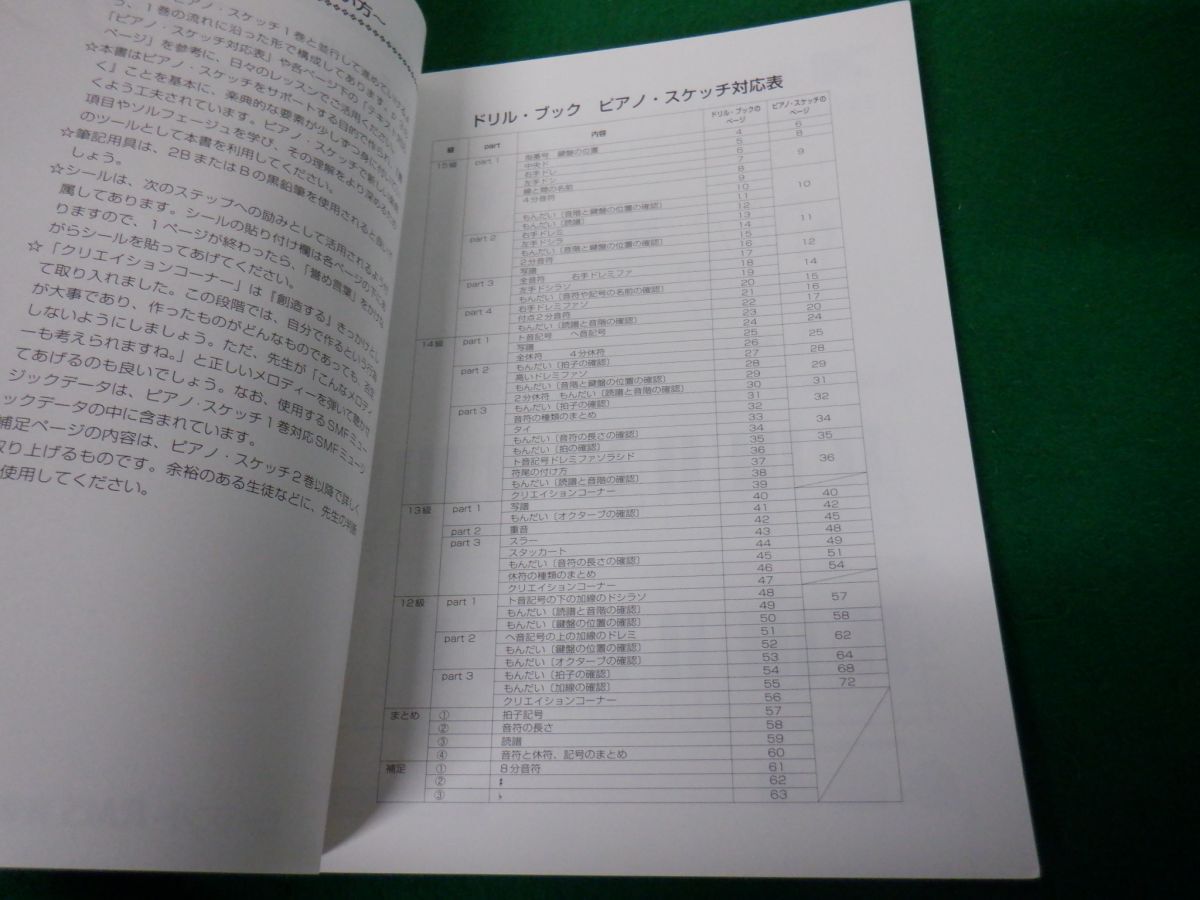 い方～
ピアノ・スケッチ1巻と並行して進めていけるよ
う、1巻の流れに沿った形で構成してあります。
「ピアノ・スケッチ対応表」や各ページ下の「テキスト対応
ページ」を参考に、日々のレッスンでご活用ください。
☆本書はピアノ・スケッチをサポートする目的で作られ、「書
く」ことを基本に、楽典的な要素が少しずつ身に付いてい
くよう工夫されています。ピアノ・スケッチで新しい楽典
項目やソルフェージュを学び、その理解をより深めるため
のツールとして本書を利用してください。
☆筆記用具は、2BまたはBの黒鉛筆を使用されると良いで
しょう。
☆シールは、次のステップへの励みとして活用されるよう付
属してあります。シールの貼り付け欄は各ページの下にあ
りますので、1ページが終わったら、「誉め言葉」をかけな
がらシールを貼ってあげてください。
☆「クリエイションコーナー」は『創造する』きっかけとし
て取り入れました。この段階では、自分で作るという行為
が大事であり、作ったものがどんなものであっても、否定
しないようにしましょう。ただ、先生が「こんなメロディ
ーも考えられますね。」と正しいメロディーを弾いて聴かせ
てあげるのも良いでしょう。なお、使用するSMFミュー
ジックデータは、ピアノ・スケッチ1巻対応SMFミュージ
ックデータの中に含まれています。
補足ページの内容は、ピアノ・スケッチ2巻以降で詳しく
取り上げるものです。余裕のある生徒などに、先生の判断
使用してください。
ドリル・ブック ピアノ・スケッチ対応表
級 part 内容 ドリル・ブックのページ ピアノ・スケッチのページ
15級 part 1 指番号 鍵盤の位置 4 6
中央ド 5 8
右手ドレ 6 9
左手ドシ 7
線と間の名前 8
4分音符 9 10
10
もんだい〔音階と鍵盤の位置の確認〕 11
もんだい〔読譜〕 12
part 2 右手ドレミ 13 11
左手ドシラ 14
もんだい〔音階と鍵盤の位置の確認〕 15 12
2分音符 16
写譜 17 14
part 3 全音符 右手ドレミファ 18
左手ドシラソ 19 15
もんだい〔音符や記号の名前の確認〕 20 16
part 4 右手ドレミファソ 21 17
付点2分音符 22 20
もんだい〔読譜と音階の確認〕 23 24
14級 part 1 ト音記号 ヘ音記号 24 25
写譜 25
全休符 4分休符 26 28
part 2 もんだい〔拍子の確認〕 27
高いドレミファソ 28 29
もんだい〔音階と鍵盤の位置の確認〕 29
2分休符 もんだい〔読譜と音階の確認〕 30 31
part 3 もんだい〔拍子の確認〕 31 32
音符の種類のまとめ 32
タイ 33 34
もんだい〔音符の長さの確認〕 34
もんだい〔拍の確認〕 35 35
ト音記号ドレミファソラシド 36 36
符尾の付け方 37
もんだい〔読譜と音階の確認〕 38
クリエイションコーナー 39
13級 part 1 写譜 40 40
もんだい〔オクターブの確認〕 41 42
part 2 重音 42 45
part 3 スラー 43 48
スタッカート 44 49
もんだい〔音符の長さの確認〕 45 51
休符の種類のまとめ 46 54
クリエイションコーナー 47
12級 part 1 ト音記号の下の加線のドシラソ 48 57
もんだい〔読譜と音階の確認〕 49
もんだい〔鍵盤の位置の確認〕 50 58
part 2 ヘ音記号の上の加線のドレミ 51 62
もんだい〔鍵盤の位置の確認〕 52
もんだい〔オクターブの確認〕 53 64
part 3 もんだい〔拍子の確認〕 54 68
もんだい〔加線の確認〕 55 72
クリエイションコーナー 56
まとめ ① 拍子記号 57
② 音符の長さ 58
③ 読譜 59
④ 音符と休符、記号のまとめ 60
補足 ① 8分音符 61
② ♯ 62
③ ♭ 63